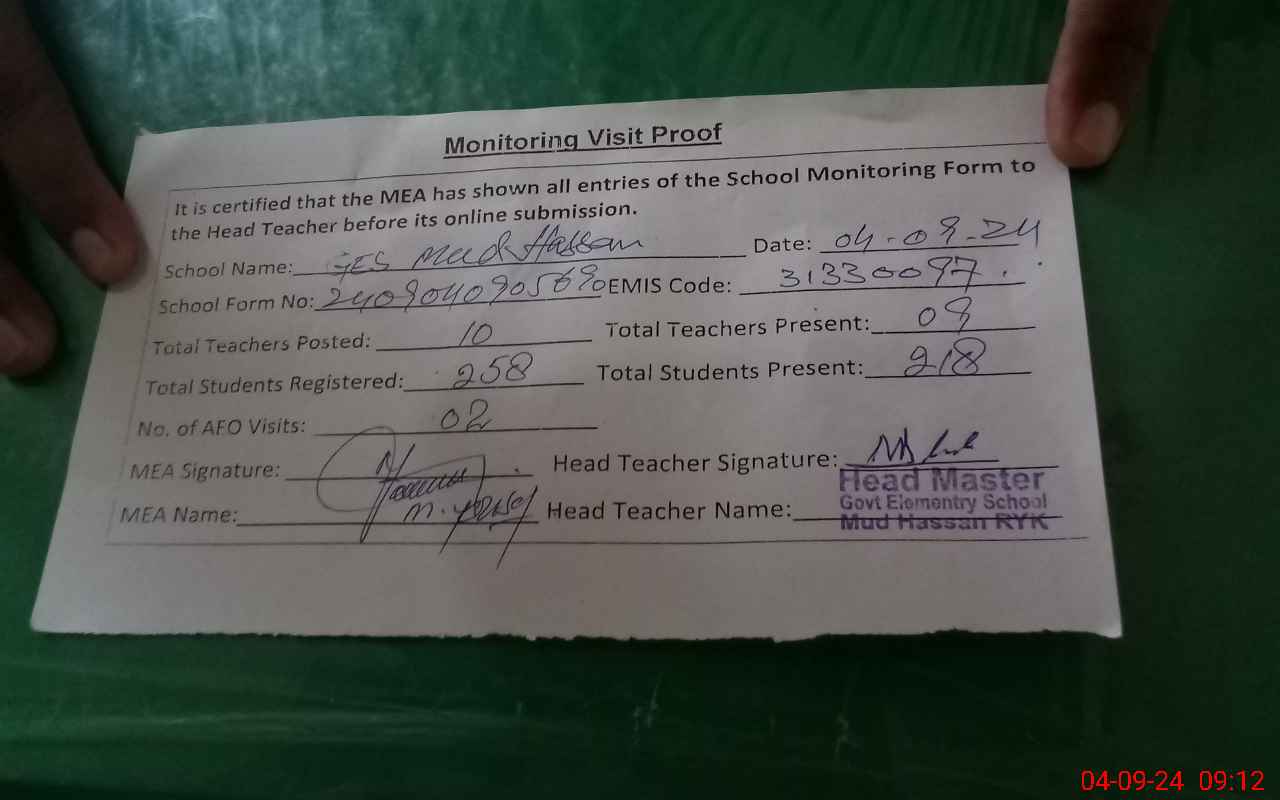 Monitoring Visit Proof
It is certified that the MEA has shown all entries of the School Monitoring Form to
the Head Teacher before its online submission.
School Name: GES Mud Hassan Date: 04-09-24
School Form No: 240904090569 EMIS Code: 31330097
Total Teachers Posted: 10 Total Teachers Present: 09
Total Students Registered: 258 Total Students Present: 218
No. of AEO Visits: 02
MEA Signature: Head Teacher Signature:
MEA Name: Head Teacher Name:
Head Master
Govt Elementry School
Mud Hassan RYK
04-09-24 09:12